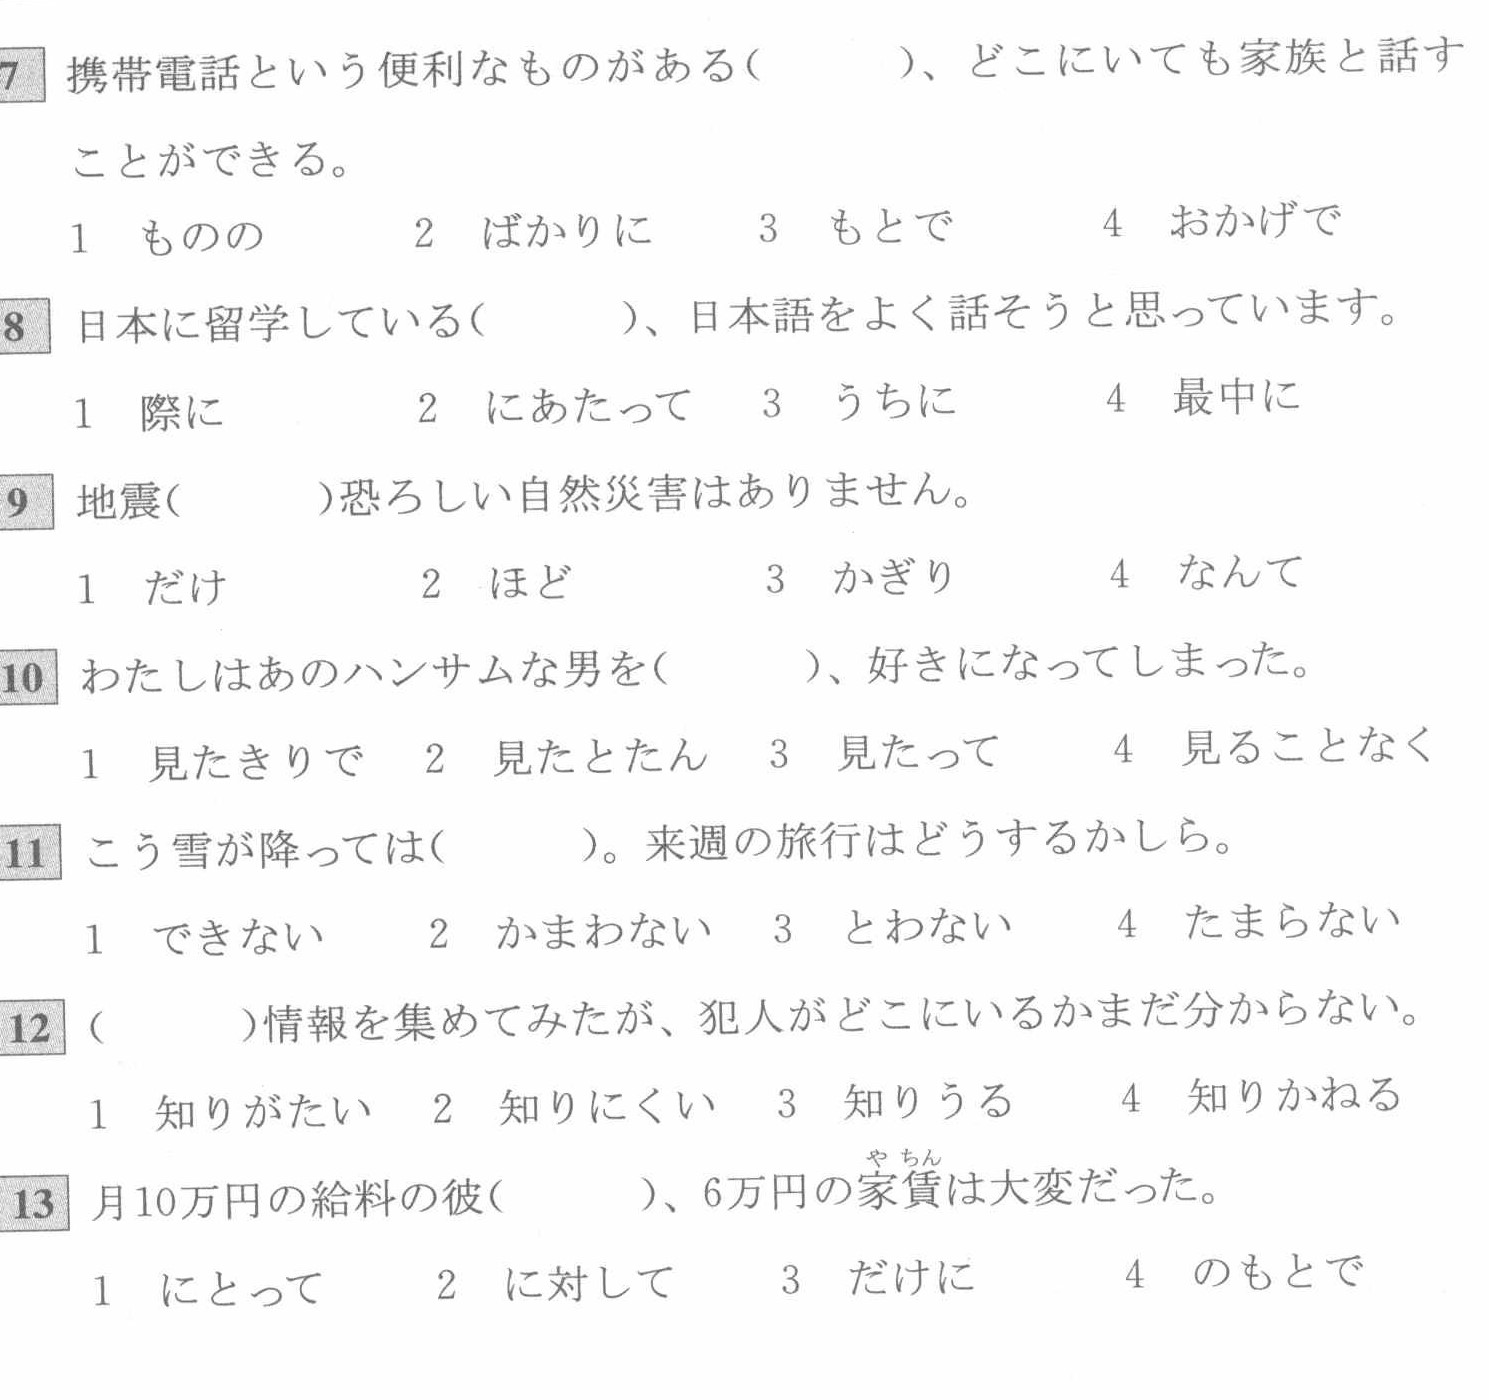 7 携帯電話という便利なものがある(　　　)、どこにいても家族と話す
ことができる。
1 ものの 2 ばかりに 3 もとで 4 おかげで
8 日本に留学している(　　　)、日本語をよく話そうと思っています。
1 際に 2 にあたって 3 うちに 4 最中に
9 地震(　　　)恐ろしい自然災害はありません。
1 だけ 2 ほど 3 かぎり 4 なんて
10 わたしはあのハンサムな男を(　　　)、好きになってしまった。
1 見たきりで 2 見たとたん 3 見たって 4 見ることなく
11 こう雪が降っては(　　　)。来週の旅行はどうするかしら。
1 できない 2 かまわない 3 とわない 4 たまらない
12 (　　　)情報を集めてみたが、犯人がどこにいるかまだ分からない。
1 知りがたい 2 知りにくい 3 知りうる 4 知りかねる
やちん
13 月10万円の給料の彼(　　　)、6万円の家賃は大変だった。
1 にとって 2 に対して 3 だけに 4 のもとで